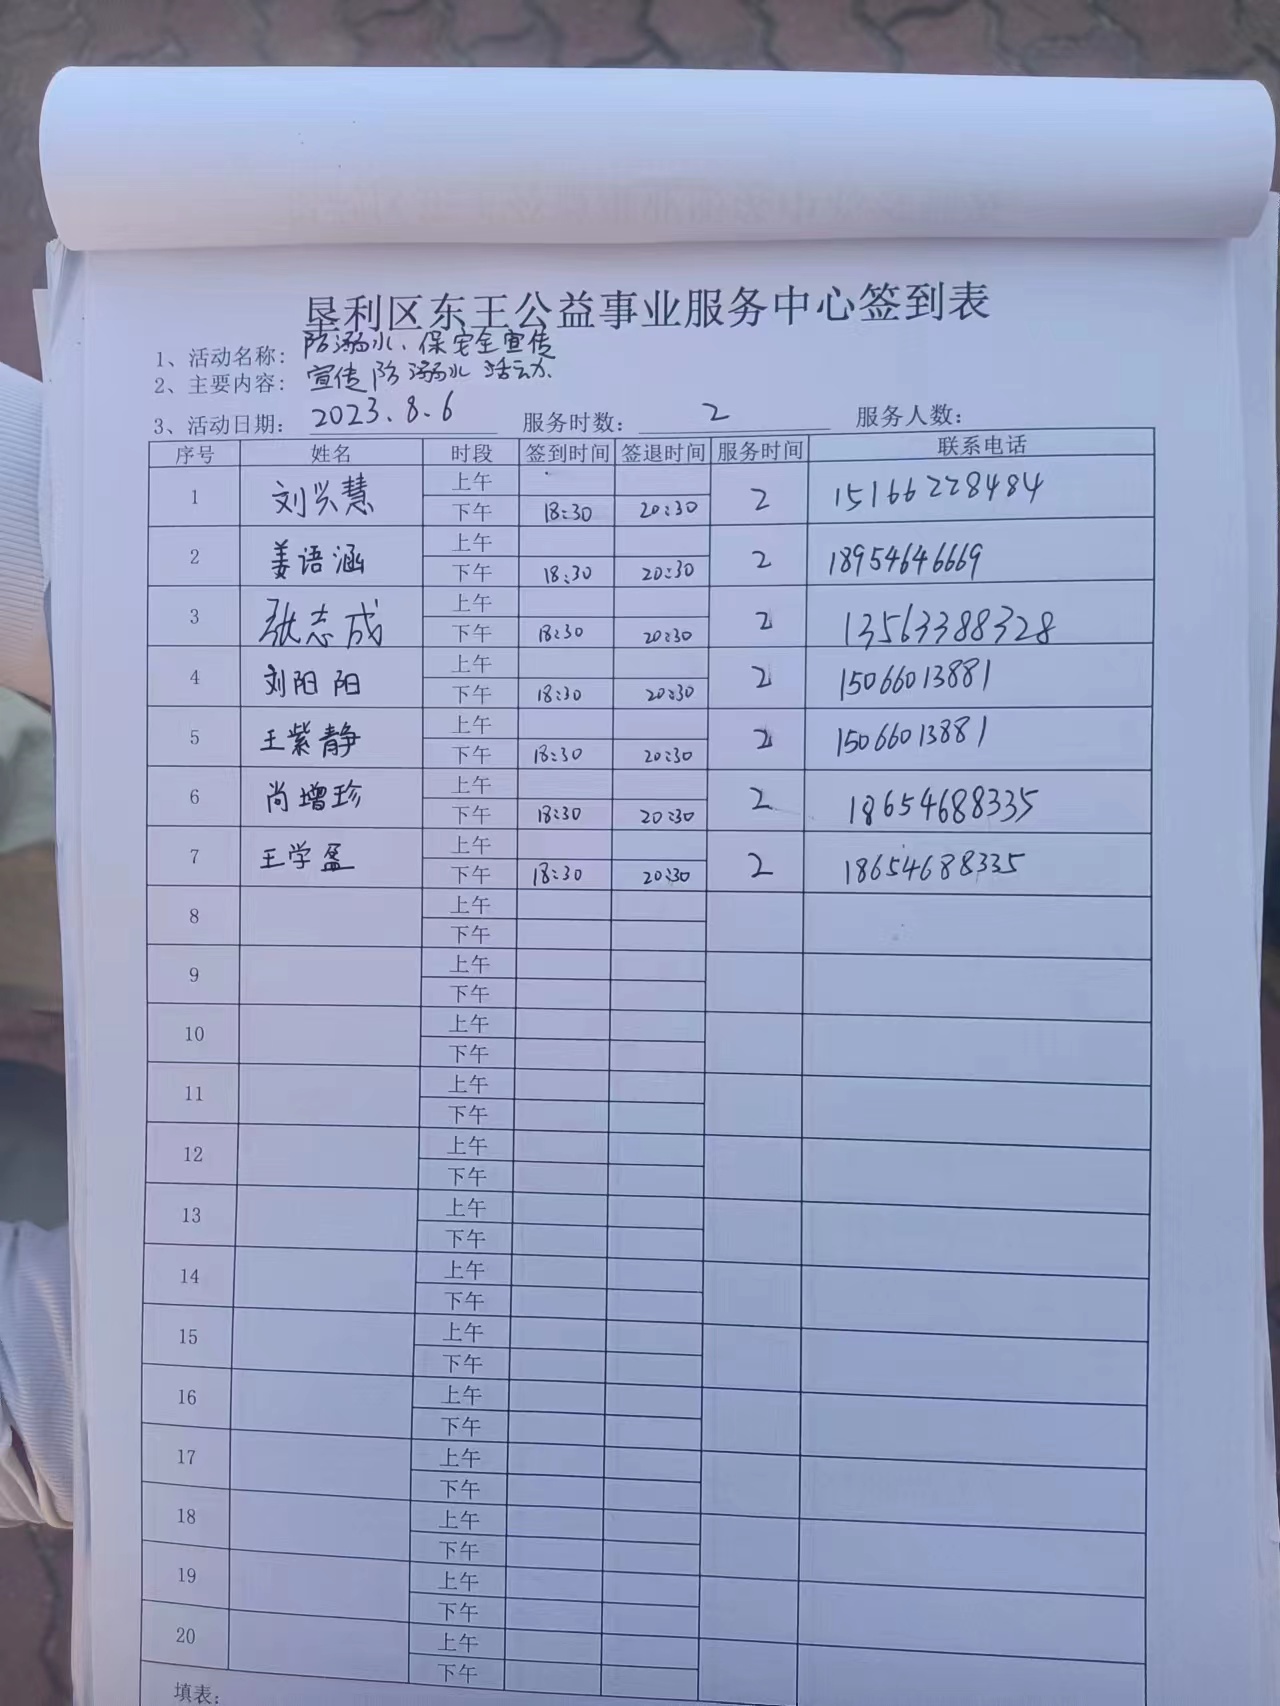 垦利区东王公益事业服务中心签到表
1、活动名称: 防溺水、保安全宣传
2、主要内容: 宣传防溺水活动
3、活动日期: 2023.8.6 服务时数: 2 服务人数:
序号 姓名 时段 签到时间 签退时间 服务时间 联系电话
1 刘兴慧 上午 2 15166228484
下午 18:30 20:30
2 姜语涵 上午 2 18954646669
下午 18:30 20:30
3 张志成 上午 2 13563388328
下午 18:30 20:30
4 刘阳阳 上午 2 15066013881
下午 18:30 20:30
5 王紫静 上午 2 15066013881
下午 18:30 20:30
6 尚增珍 上午 2 18654688335
下午 18:30 20:30
7 王学盈 上午 2 18654688335
下午 18:30 20:30
8 上午
下午
9 上午
下午
10 上午
下午
11 上午
下午
12 上午
下午
13 上午
下午
14 上午
下午
15 上午
下午
16 上午
下午
17 上午
下午
18 上午
下午
19 上午
下午
20 上午
下午
填表: